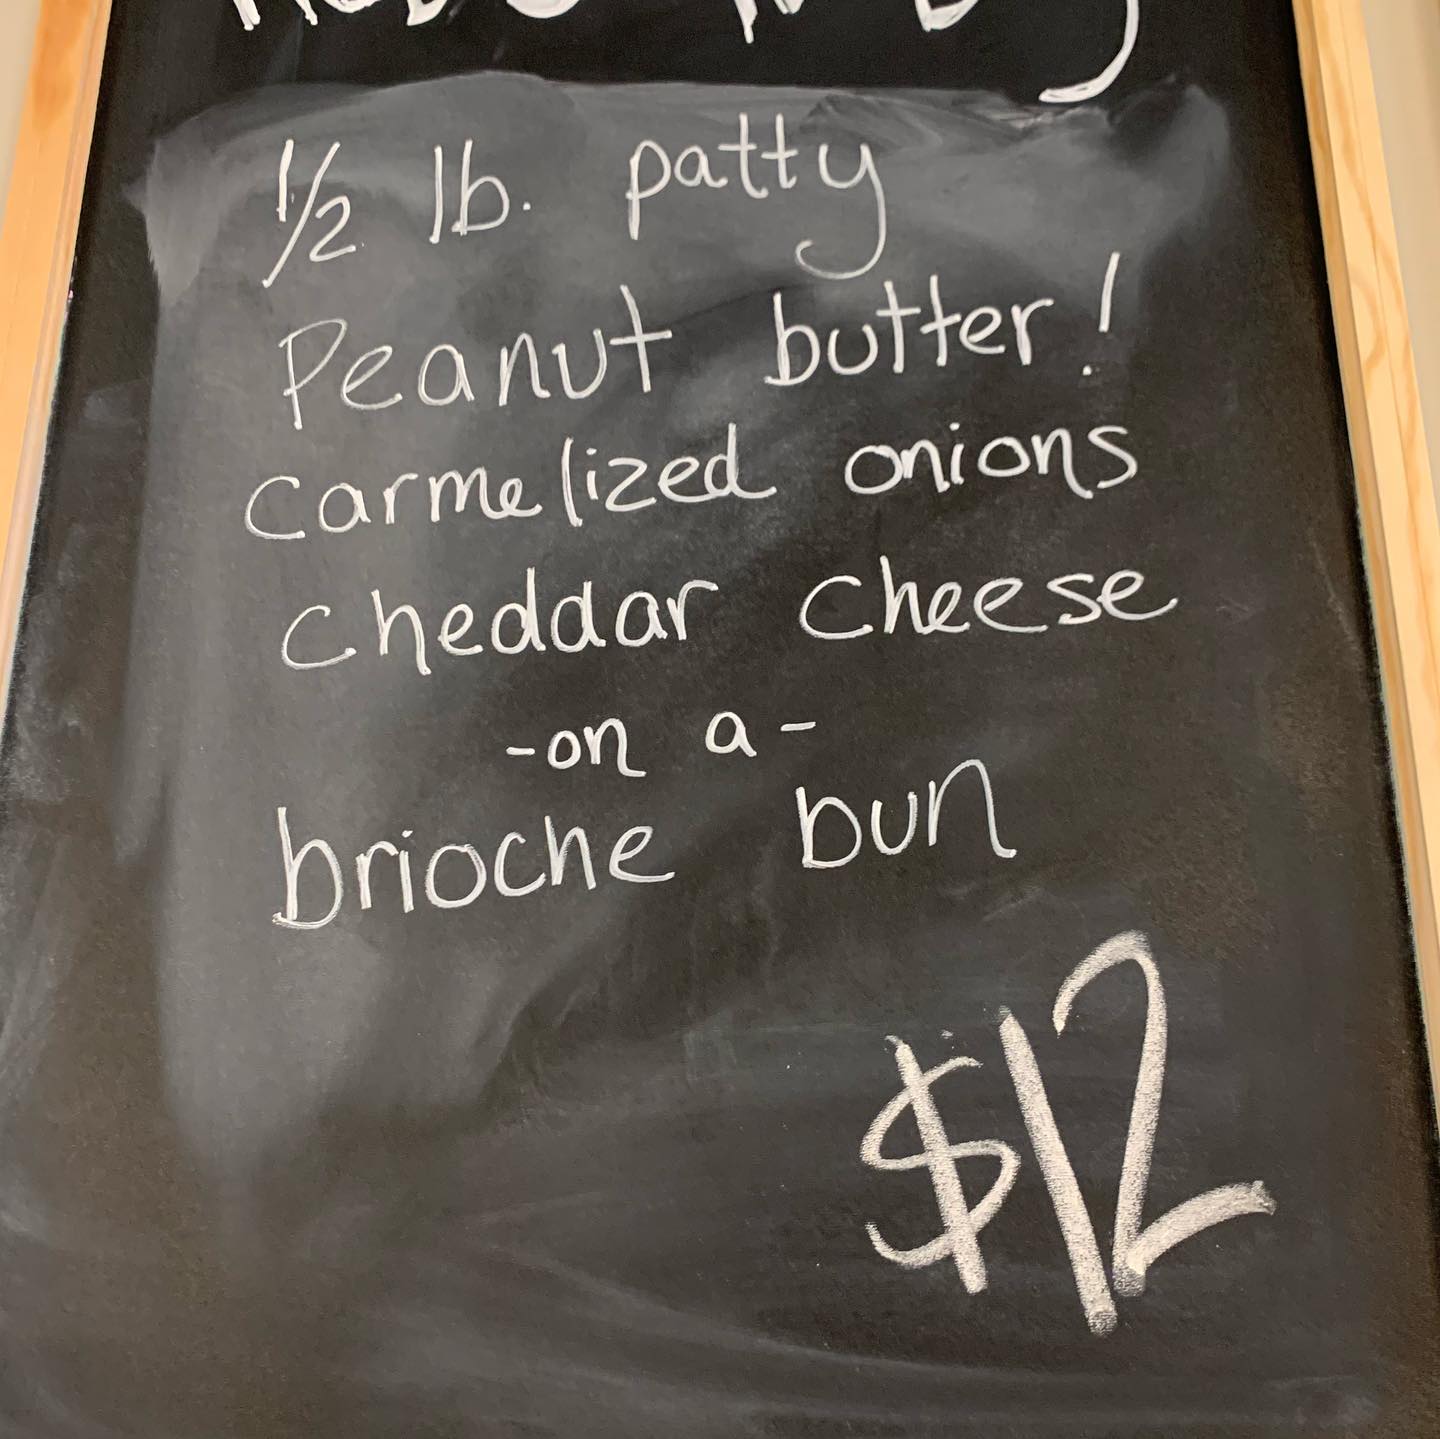 1/2 lb. patty
Peanut butter!
carmelized onions
cheddar cheese
-on a-
brioche bun
$12